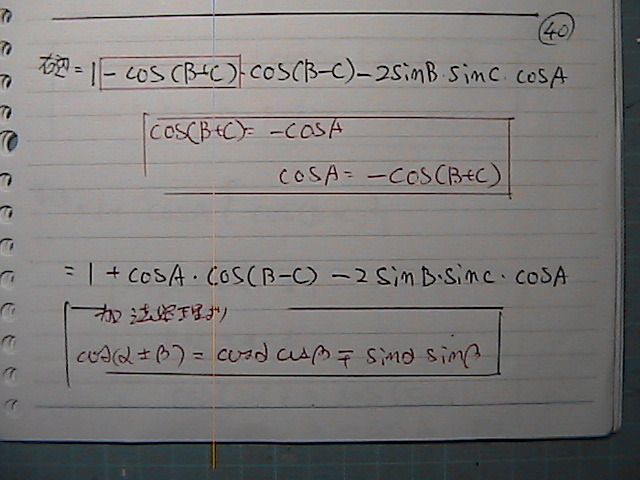 40
右辺 = 1 - cos(B+C)·cos(B-C) - 2sinB·sinC·cosA
cos(B+C) = -cosA
cosA = -cos(B+C)
= 1 + cosA·cos(B-C) - 2sinB·sinC·cosA
加法定理より
cos(α±β) = cosα cosβ ∓ sinα sinβ